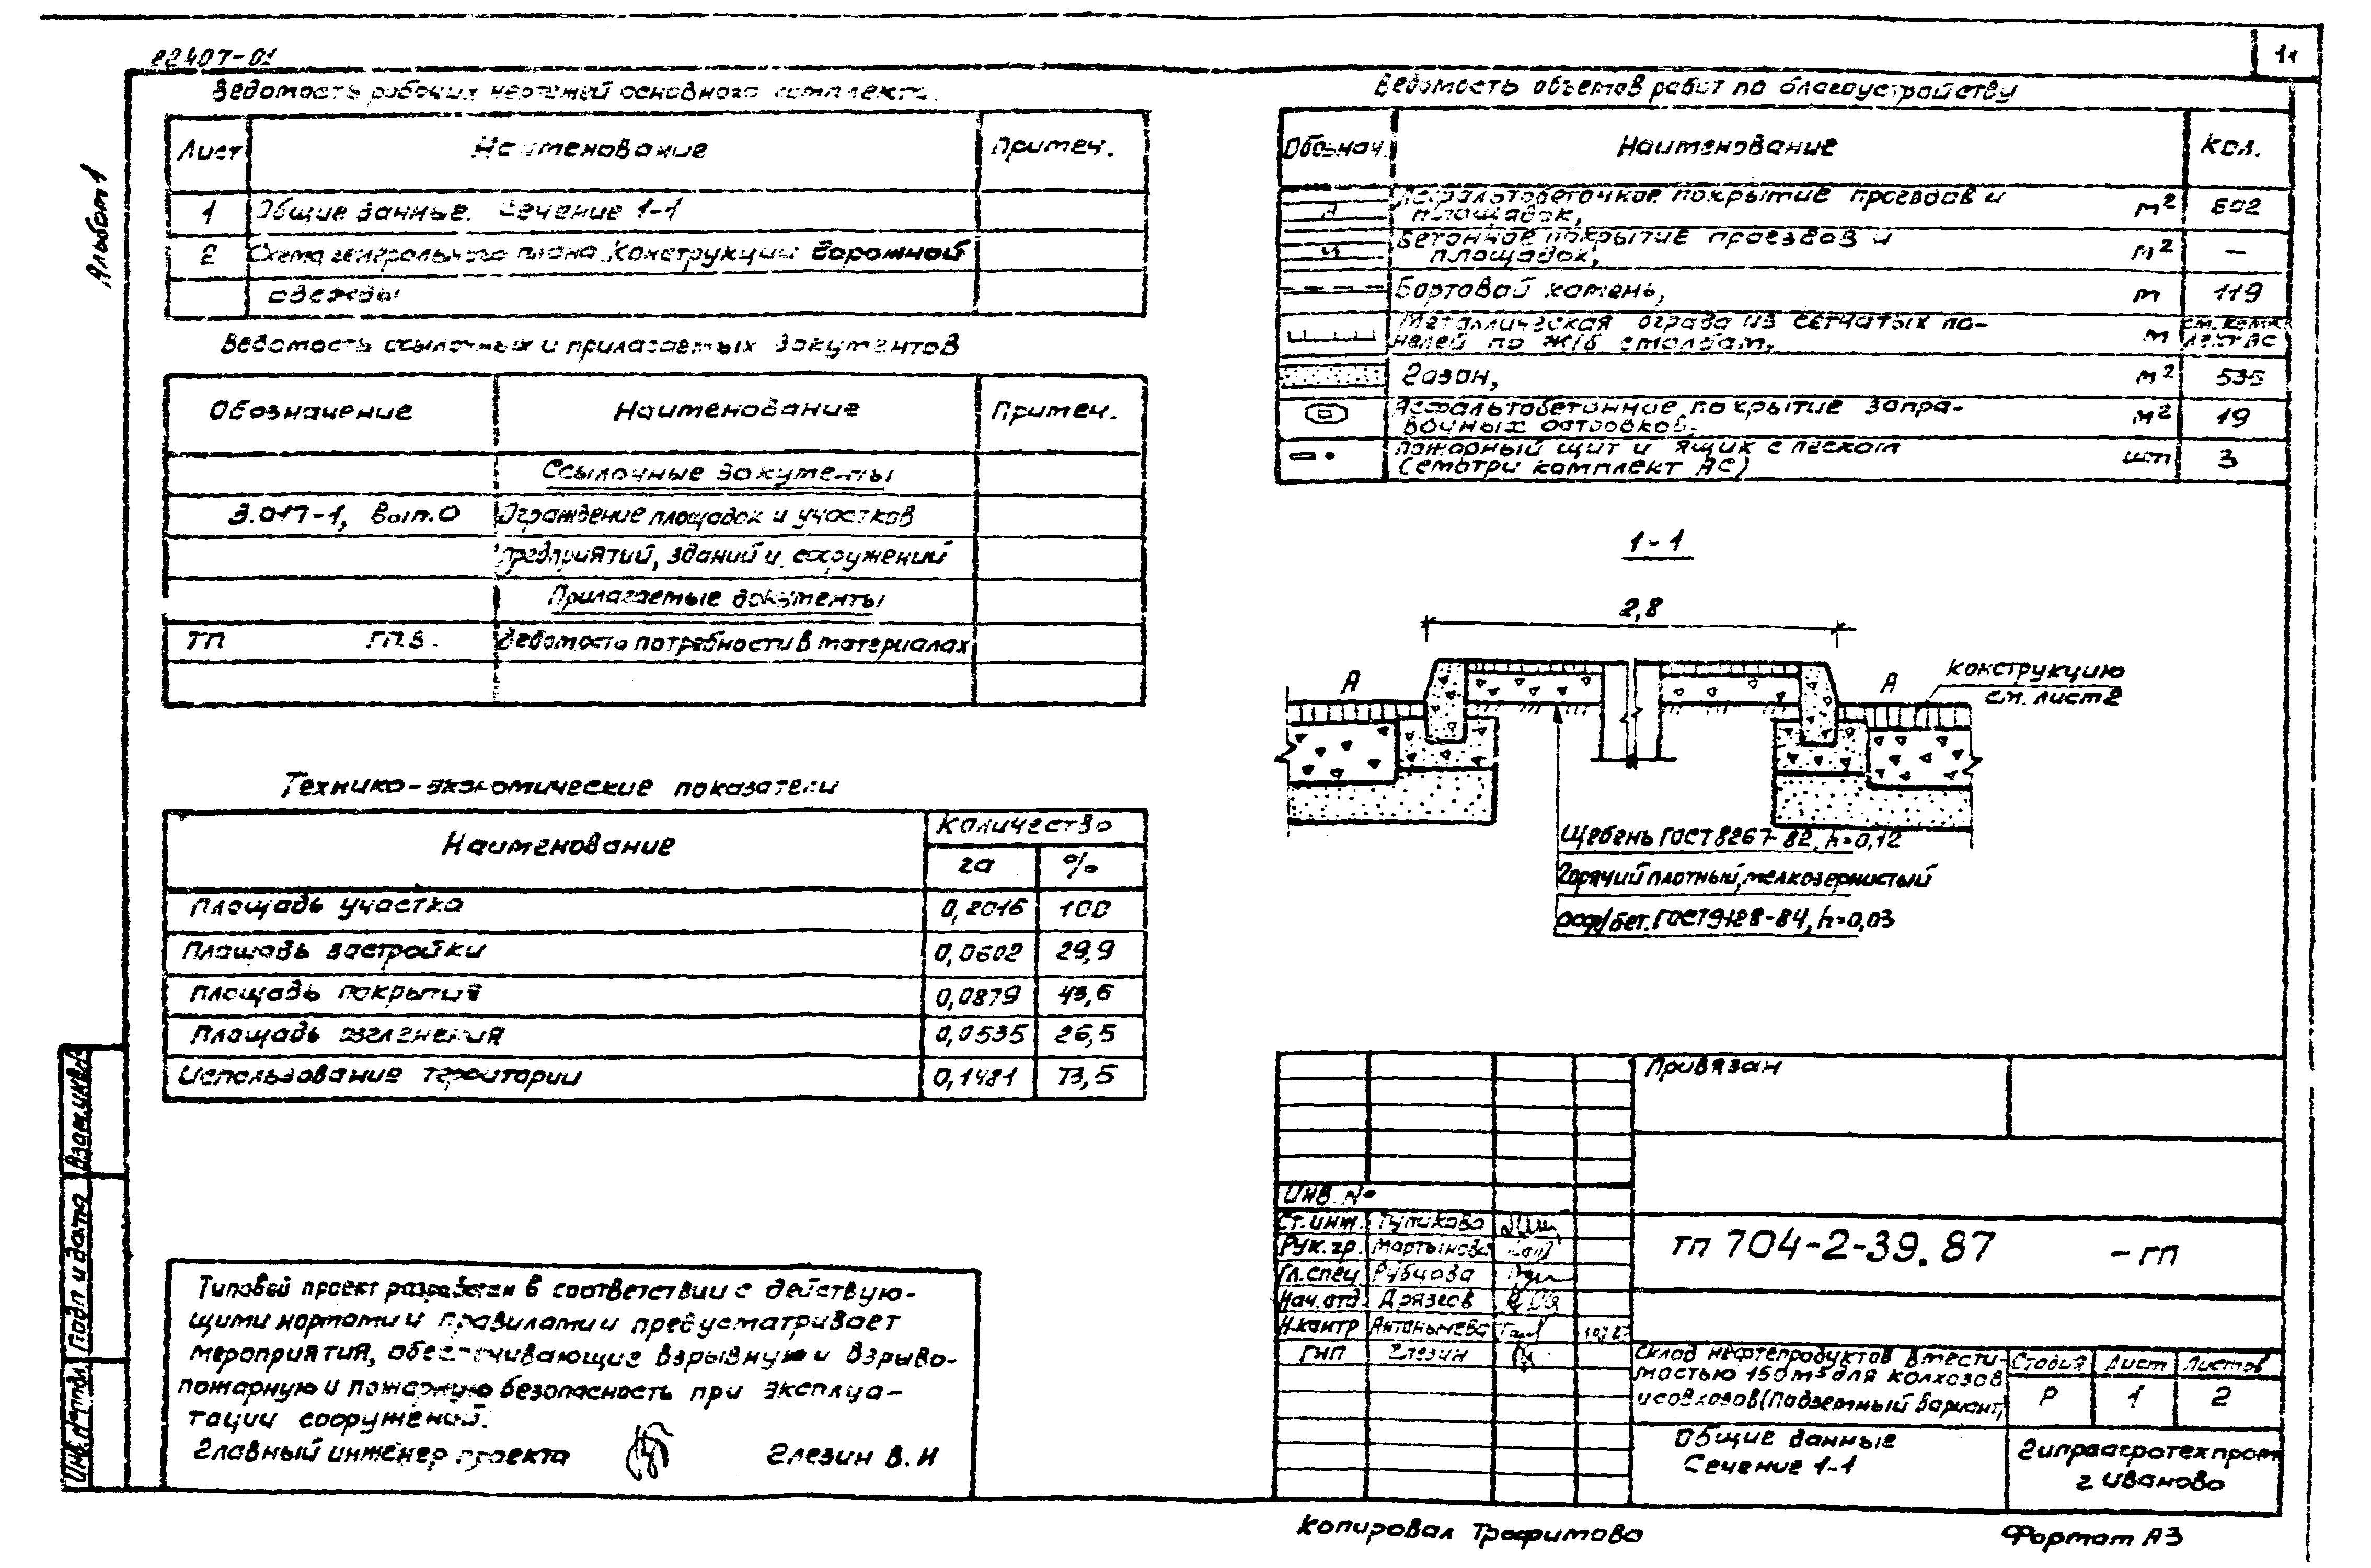 22407-01
11
Альбом 1
Ведомость рабочих чертежей основного комплекта.
Лист Наименование Примеч.
1 Общие данные. Сечение 1-1
2 Схема генерального плана. Конструкции дорожной
одежды
Ведомость ссылочных и прилагаемых документов
Обозначение Наименование Примеч.
Ссылочные документы
3.017-1, вып.0 Ограждение площадок и участков
предприятий, зданий и сооружений
Прилагаемые документы
ТП ГП.В. Ведомость потребности в материалах
Технико-экономические показатели
Наименование Количество
га %
Площадь участка 0,2016 100
Площадь застройки 0,0602 29,9
Площадь покрытия 0,0879 43,6
Площадь озеленения 0,0535 26,5
Использование территории 0,1481 73,5
Типовой проект разработан в соответствии с действую-
щими нормами и правилами и предусматривает
мероприятия, обеспечивающие взрывную и взрыво-
пожарную и пожарную безопасность при эксплуа-
тации сооружений.
Главный инженер проекта Глезин В.И
Ведомость объемов работ по благоустройству
Обознач. Наименование Кол.
А Асфальтобетонное покрытие проездов и
площадок, м2
Бетонное покрытие проездов и
площадок, м2 –
Бортовой камень, м 119
Металлическая ограда из сетчатых па-
нелей по ж/б столбам, м см. комп-
лект АС
Газон, м2 535
Асфальтобетонное покрытие запра-
вочных островков, м2 19
Пожарный щит и ящик с песком
(смотри комплект АС) шт 3
1-1
2,8
А
А
Конструкцию
см. лист 2
Щебень ГОСТ 8267-82, h=0,12
Горячий плотный, мелкозернистый
асф/бет. ГОСТ 9128-84, h=0,03
Привязан
Инв. №
Ст.инж. Туликова
Рук.гр. Мартынова
Гл.спец Рубцова
Нач.отд. Дрязгов
Н.контр
ГИП Глезин
ТП 704-2-39.87 -ГП
Склад нефтепродуктов вмести-
мостью 150м3 для колхозов
и совхозов (Подземный вариант)
Стадия Лист Листов
Р 1 2
Общие данные
Сечение 1-1
Гипроагротехпром
г Иваново
Взам.инв.
Подп и дата
Инв.№ подл.
Копировал Трофимова
Формат А3